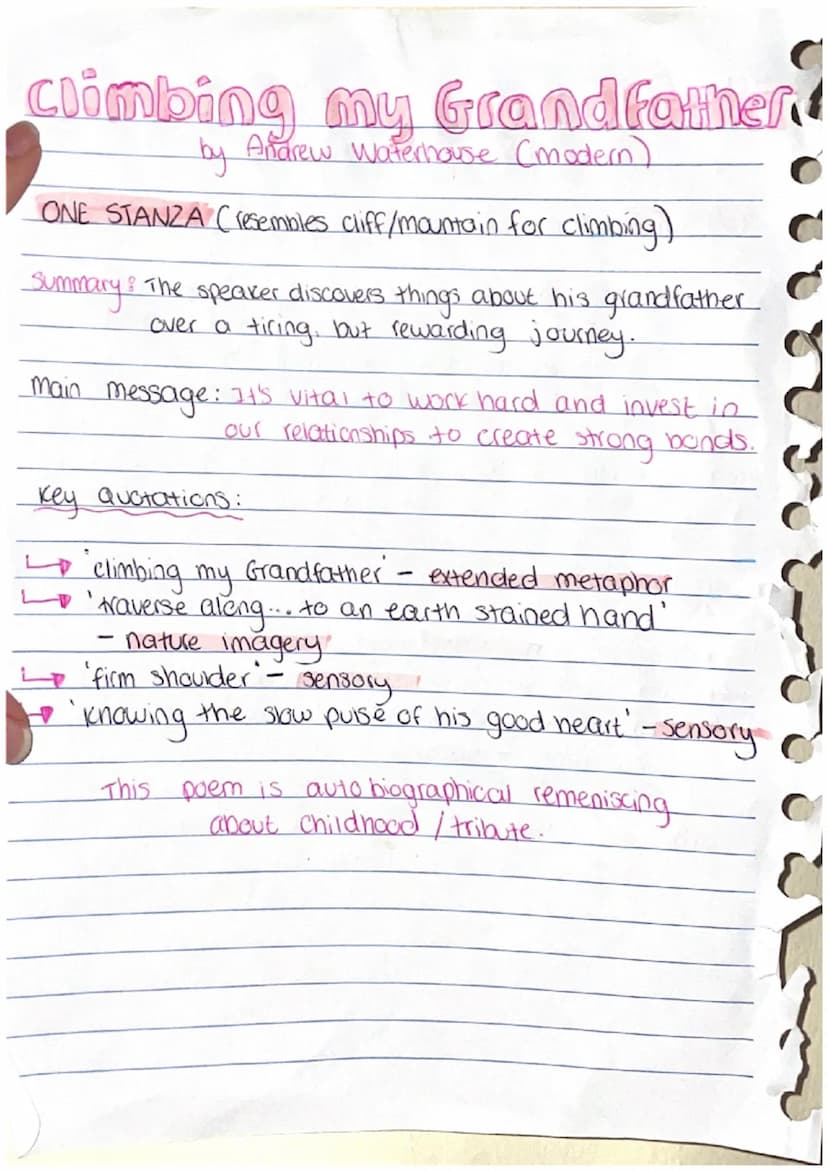 Climbing my Grandfather
by Andrew Waterhouse (modern)
ONE STANZA (resembles cliff/mountain for climbing)
Summary: The speaker discovers things about his grandfather
over a tiring, but rewarding journey.
Main message: It's vital to work hard and invest in
our relationships to create strong bonds.
Key Quotations:
↳ 'climbing my Grandfather' - extended metaphor
↳ 'traverse along... to an earth stained hand'
- nature imagery
↳ 'firm shoulder' - sensory
↳ 'knowing the slow pulse of his good heart' - sensory
This poem is autobiographical remeniscing
about childhood / tribute.